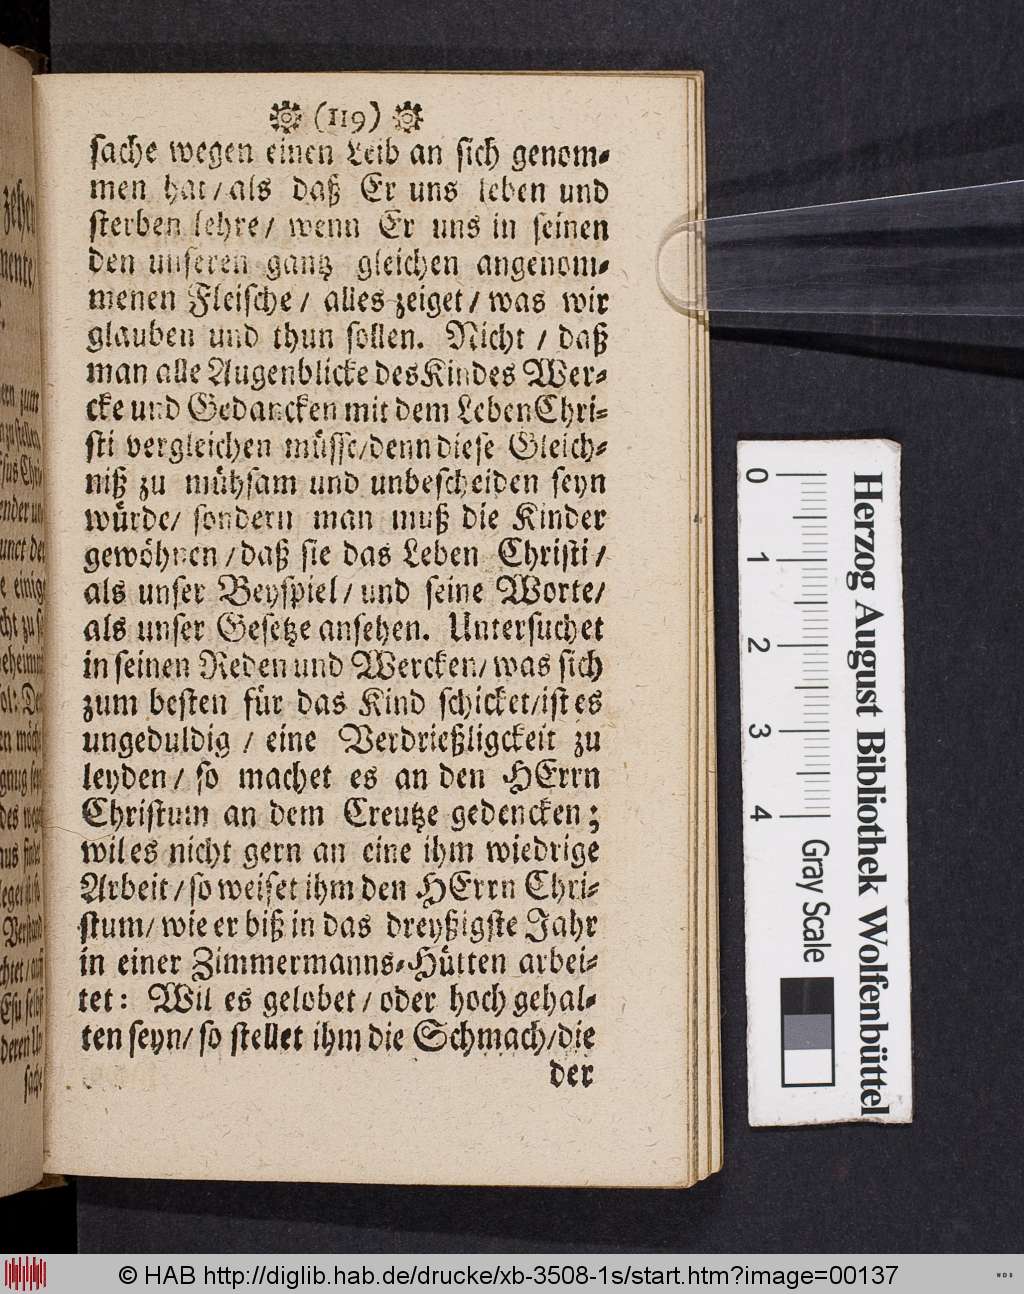 (119)
sache wegen einen Leib an sich genom-
men hat/als daß Er uns leben und
sterben lehre/ wenn Er uns in seinen
den unseren gantz gleichen angenom-
menen Fleische / alles zeiget / was wir
glauben und thun sollen. Nicht / daß
man alle Augenblicke des Kindes Wer-
cke und Gedancken mit dem Leben Chri-
sti vergleichen müsse/denn diese Gleich-
niß zu mühsam und unbescheiden seyn
würde/ sondern man muß die Kinder
gewöhnen/daß sie das Leben Christi/
als unser Beyspiel/ und seine Worte/
als unser Gesetze ansehen. Untersuchet
in seinen Reden und Wercken/ was sich
zum besten für das Kind schicket/ist es
ungeduldig / eine Verdrießligckeit zu
leyden/ so machet es an den HErrn
Christum an dem Creutze gedencken;
wil es nicht gern an eine ihm wiedrige
Arbeit/so weiset ihm den HErrn Chri-
stum/ wie er biß in das dreyßigste Jahr
in einer Zimmermanns-Hütten arbei-
tet: Wil es gelobet/oder hoch gehal-
ten seyn/ so stellet ihm die Schmach/die
der
0 1 2 3 4
Gray Scale
Herzog August Bibliothek Wolfenbüttel
© HAB http://diglib.hab.de/drucke/xb-3508-1s/start.htm?image=00137